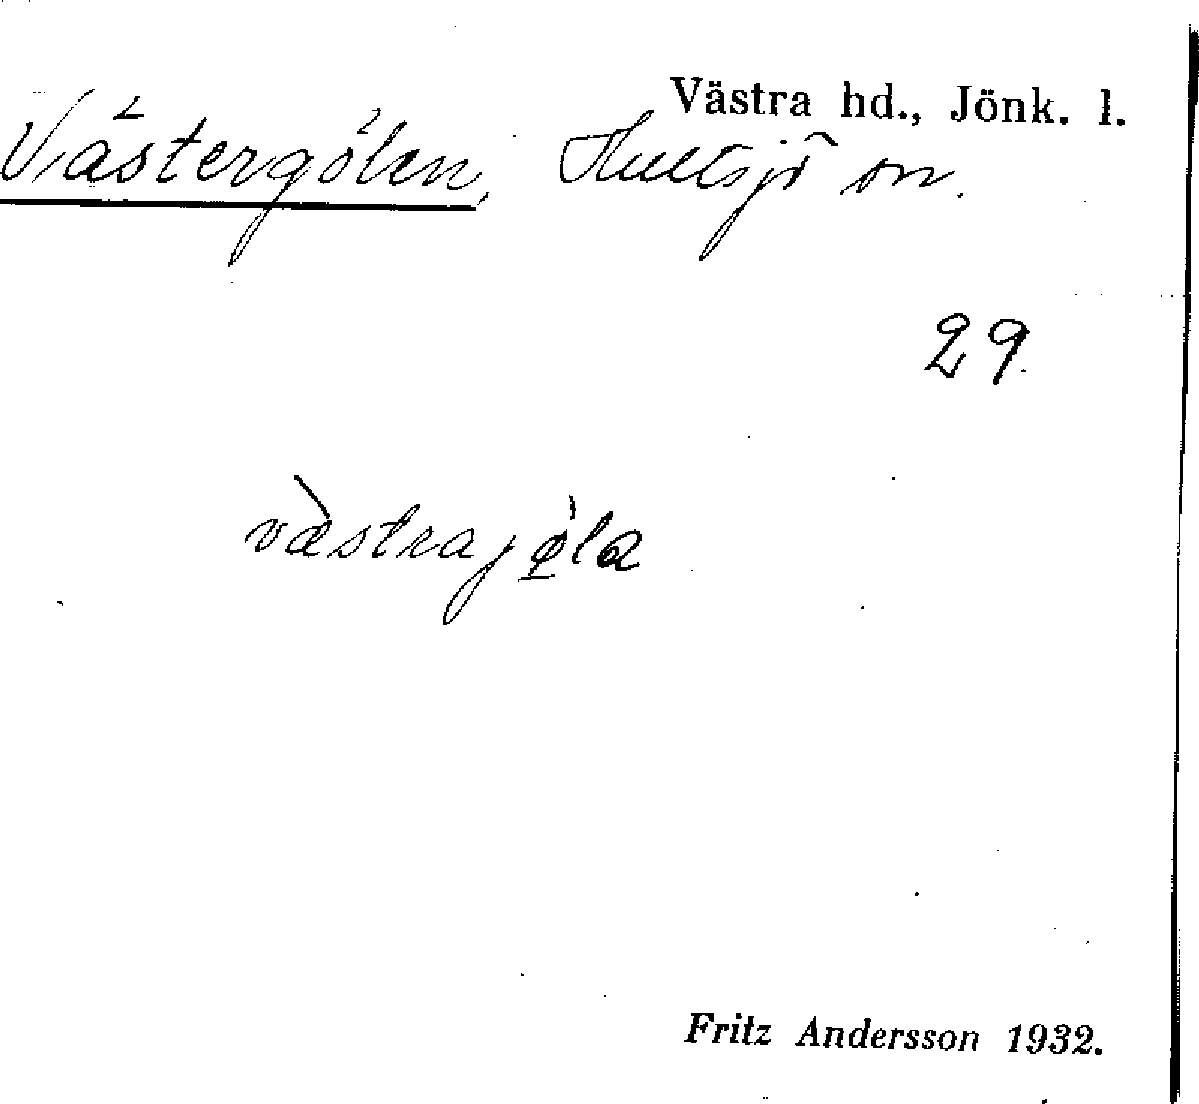 Västra hd., Jönk. l.
Västergölen, Hultsjö sn.
29.
västrajöla
Fritz Andersson 1932.